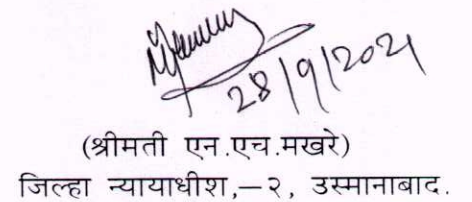 28/9/2021
(श्रीमती एन.एच.मखरे)
जिल्हा न्यायाधीश,–२, उस्मानाबाद.